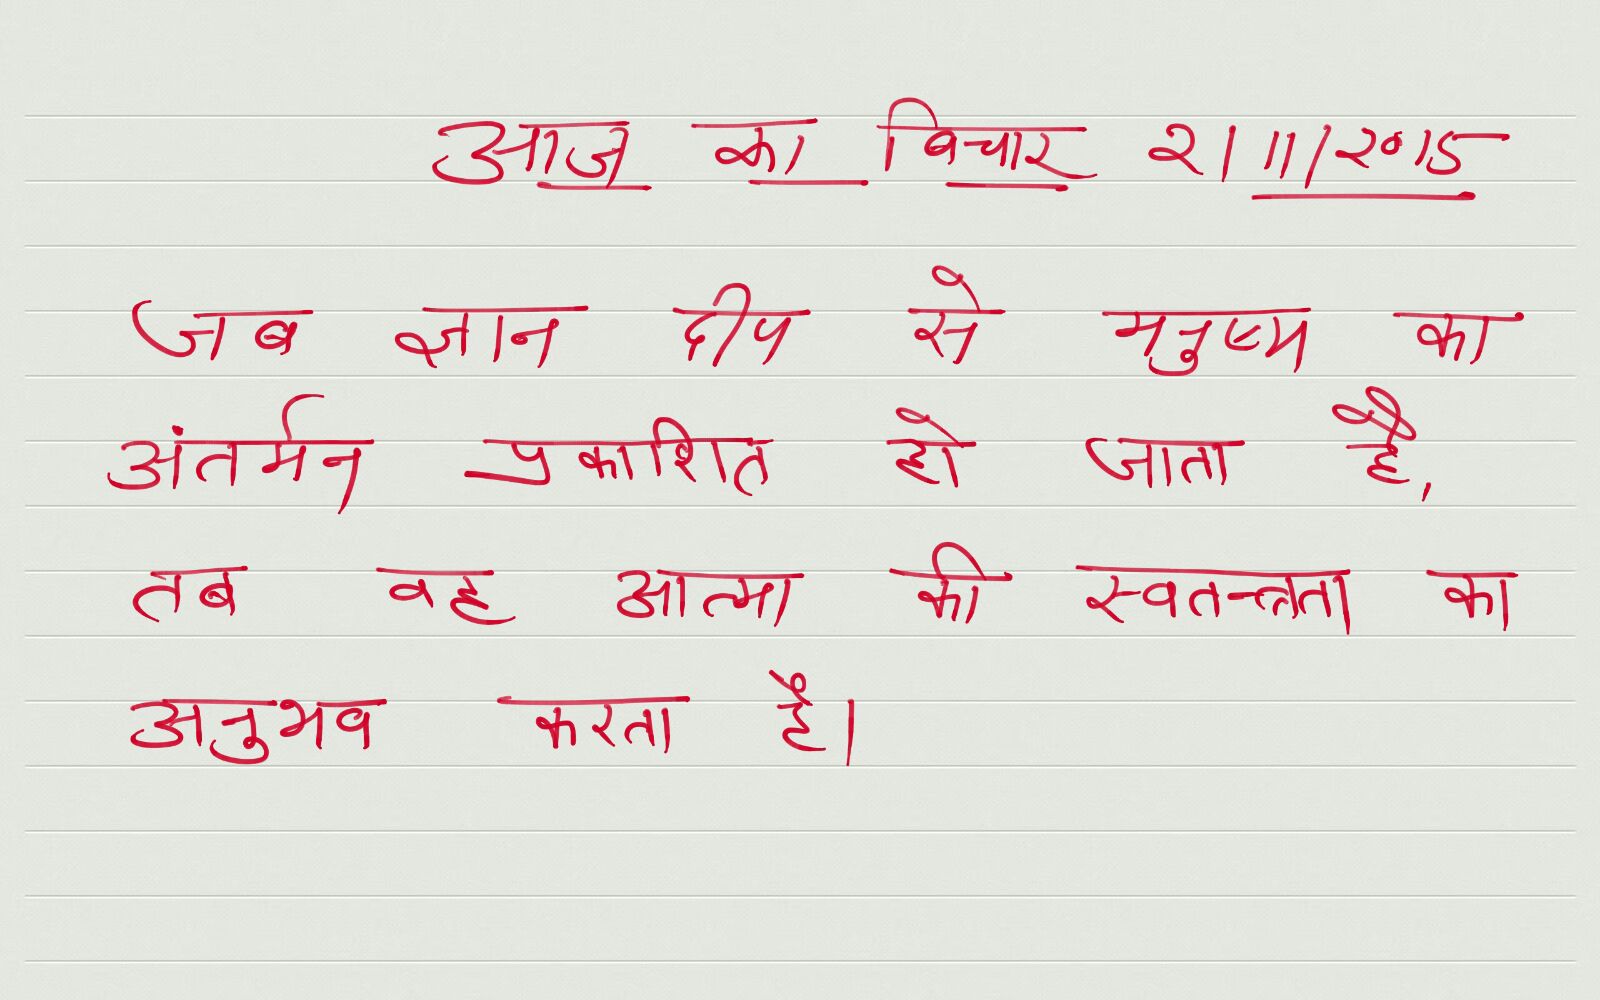 आज का विचार २/११/२०१५
जब ज्ञान दीप से मनुष्य का
अंतर्मन प्रकाशित हो जाता है,
तब वह आत्मा की स्वतन्त्रता का
अनुभव करता है।